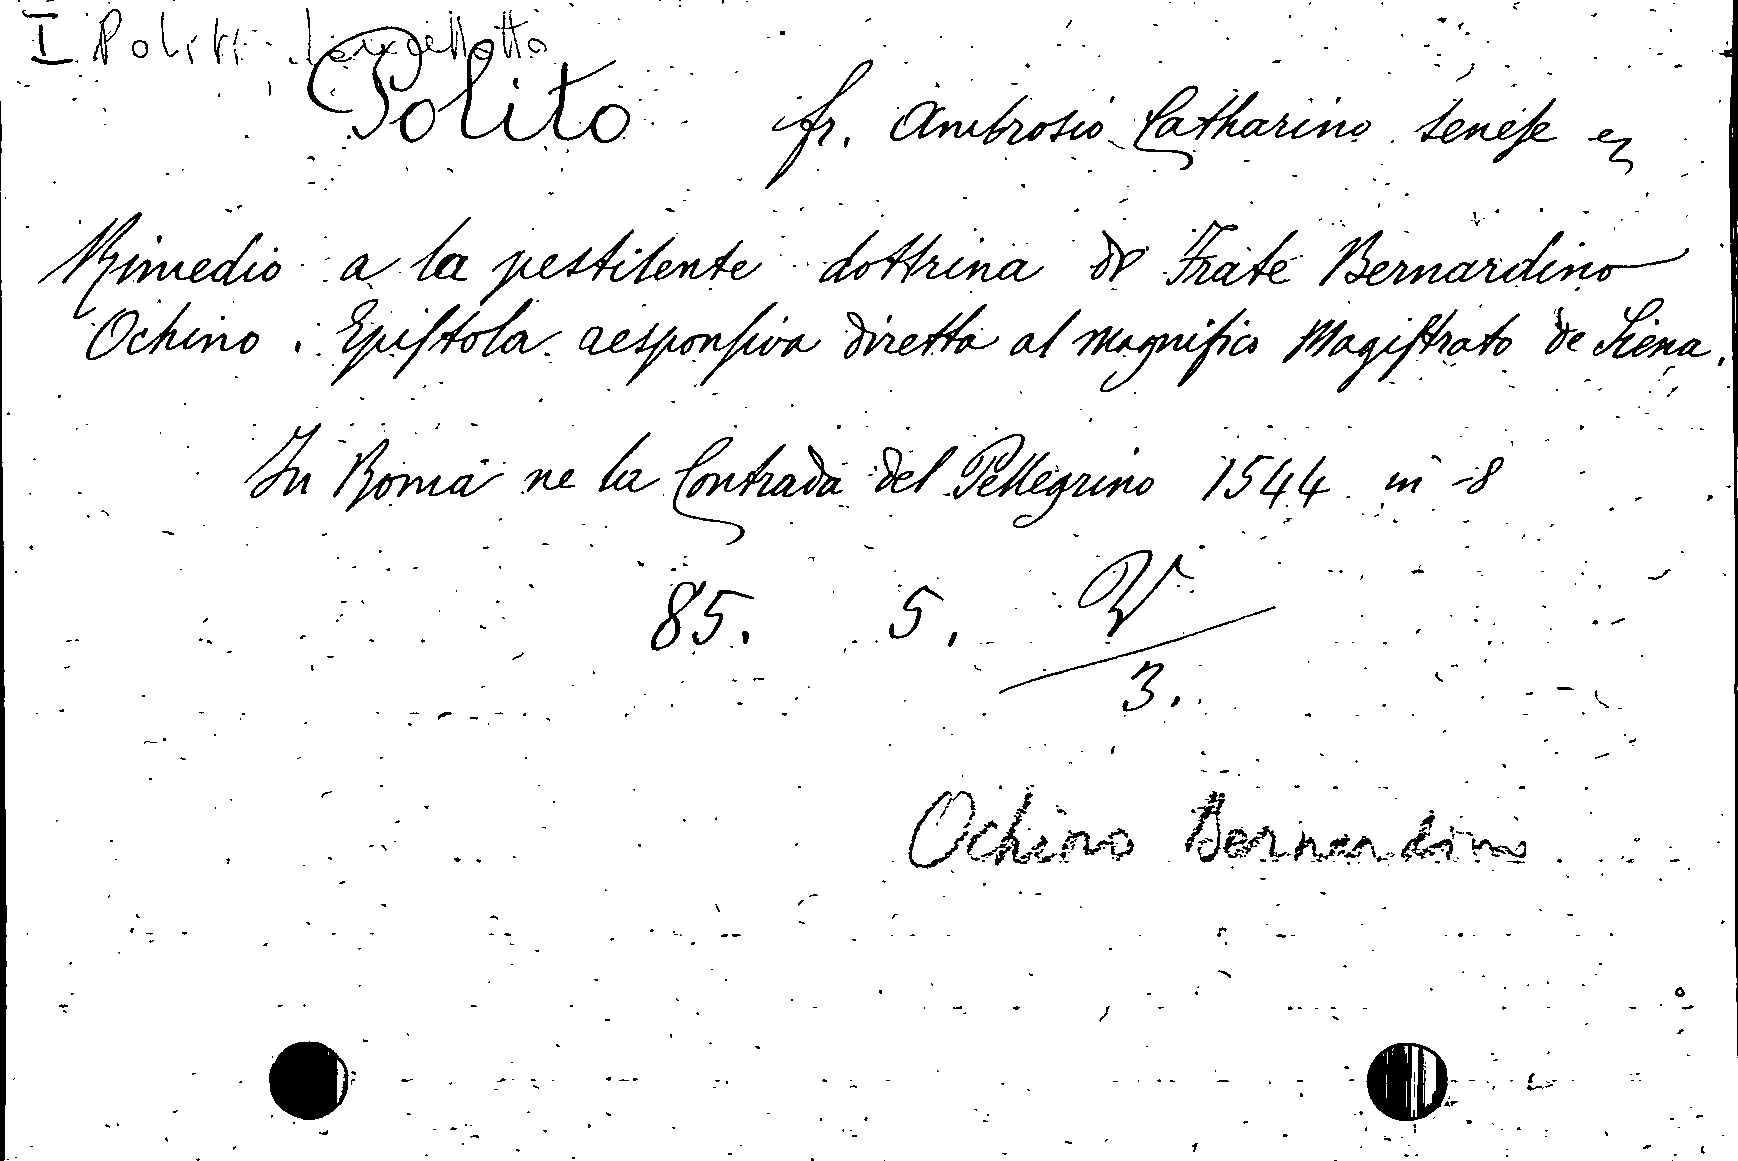 I Politi Lancellotto
Polito fr. Ambrosio Catharino seneſe
Rimedio a la pestilente dottrina di Frate Bernardino
Ochino. Epiſtola responſiva diretta al magnifico Magiſtrato de Siena.
In Roma ne la Contrada del Pellegrino 1544 in -8
85. 5. V
3.
Ochino Bernardino